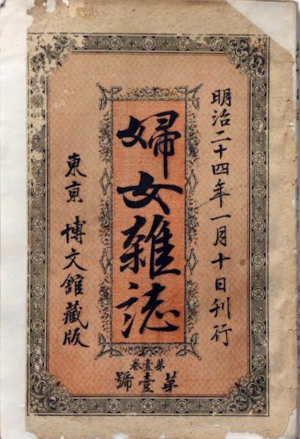 明治二十四年一月十日刊行
婦女雜誌
第壹卷
第壹號
東京 博文館藏版